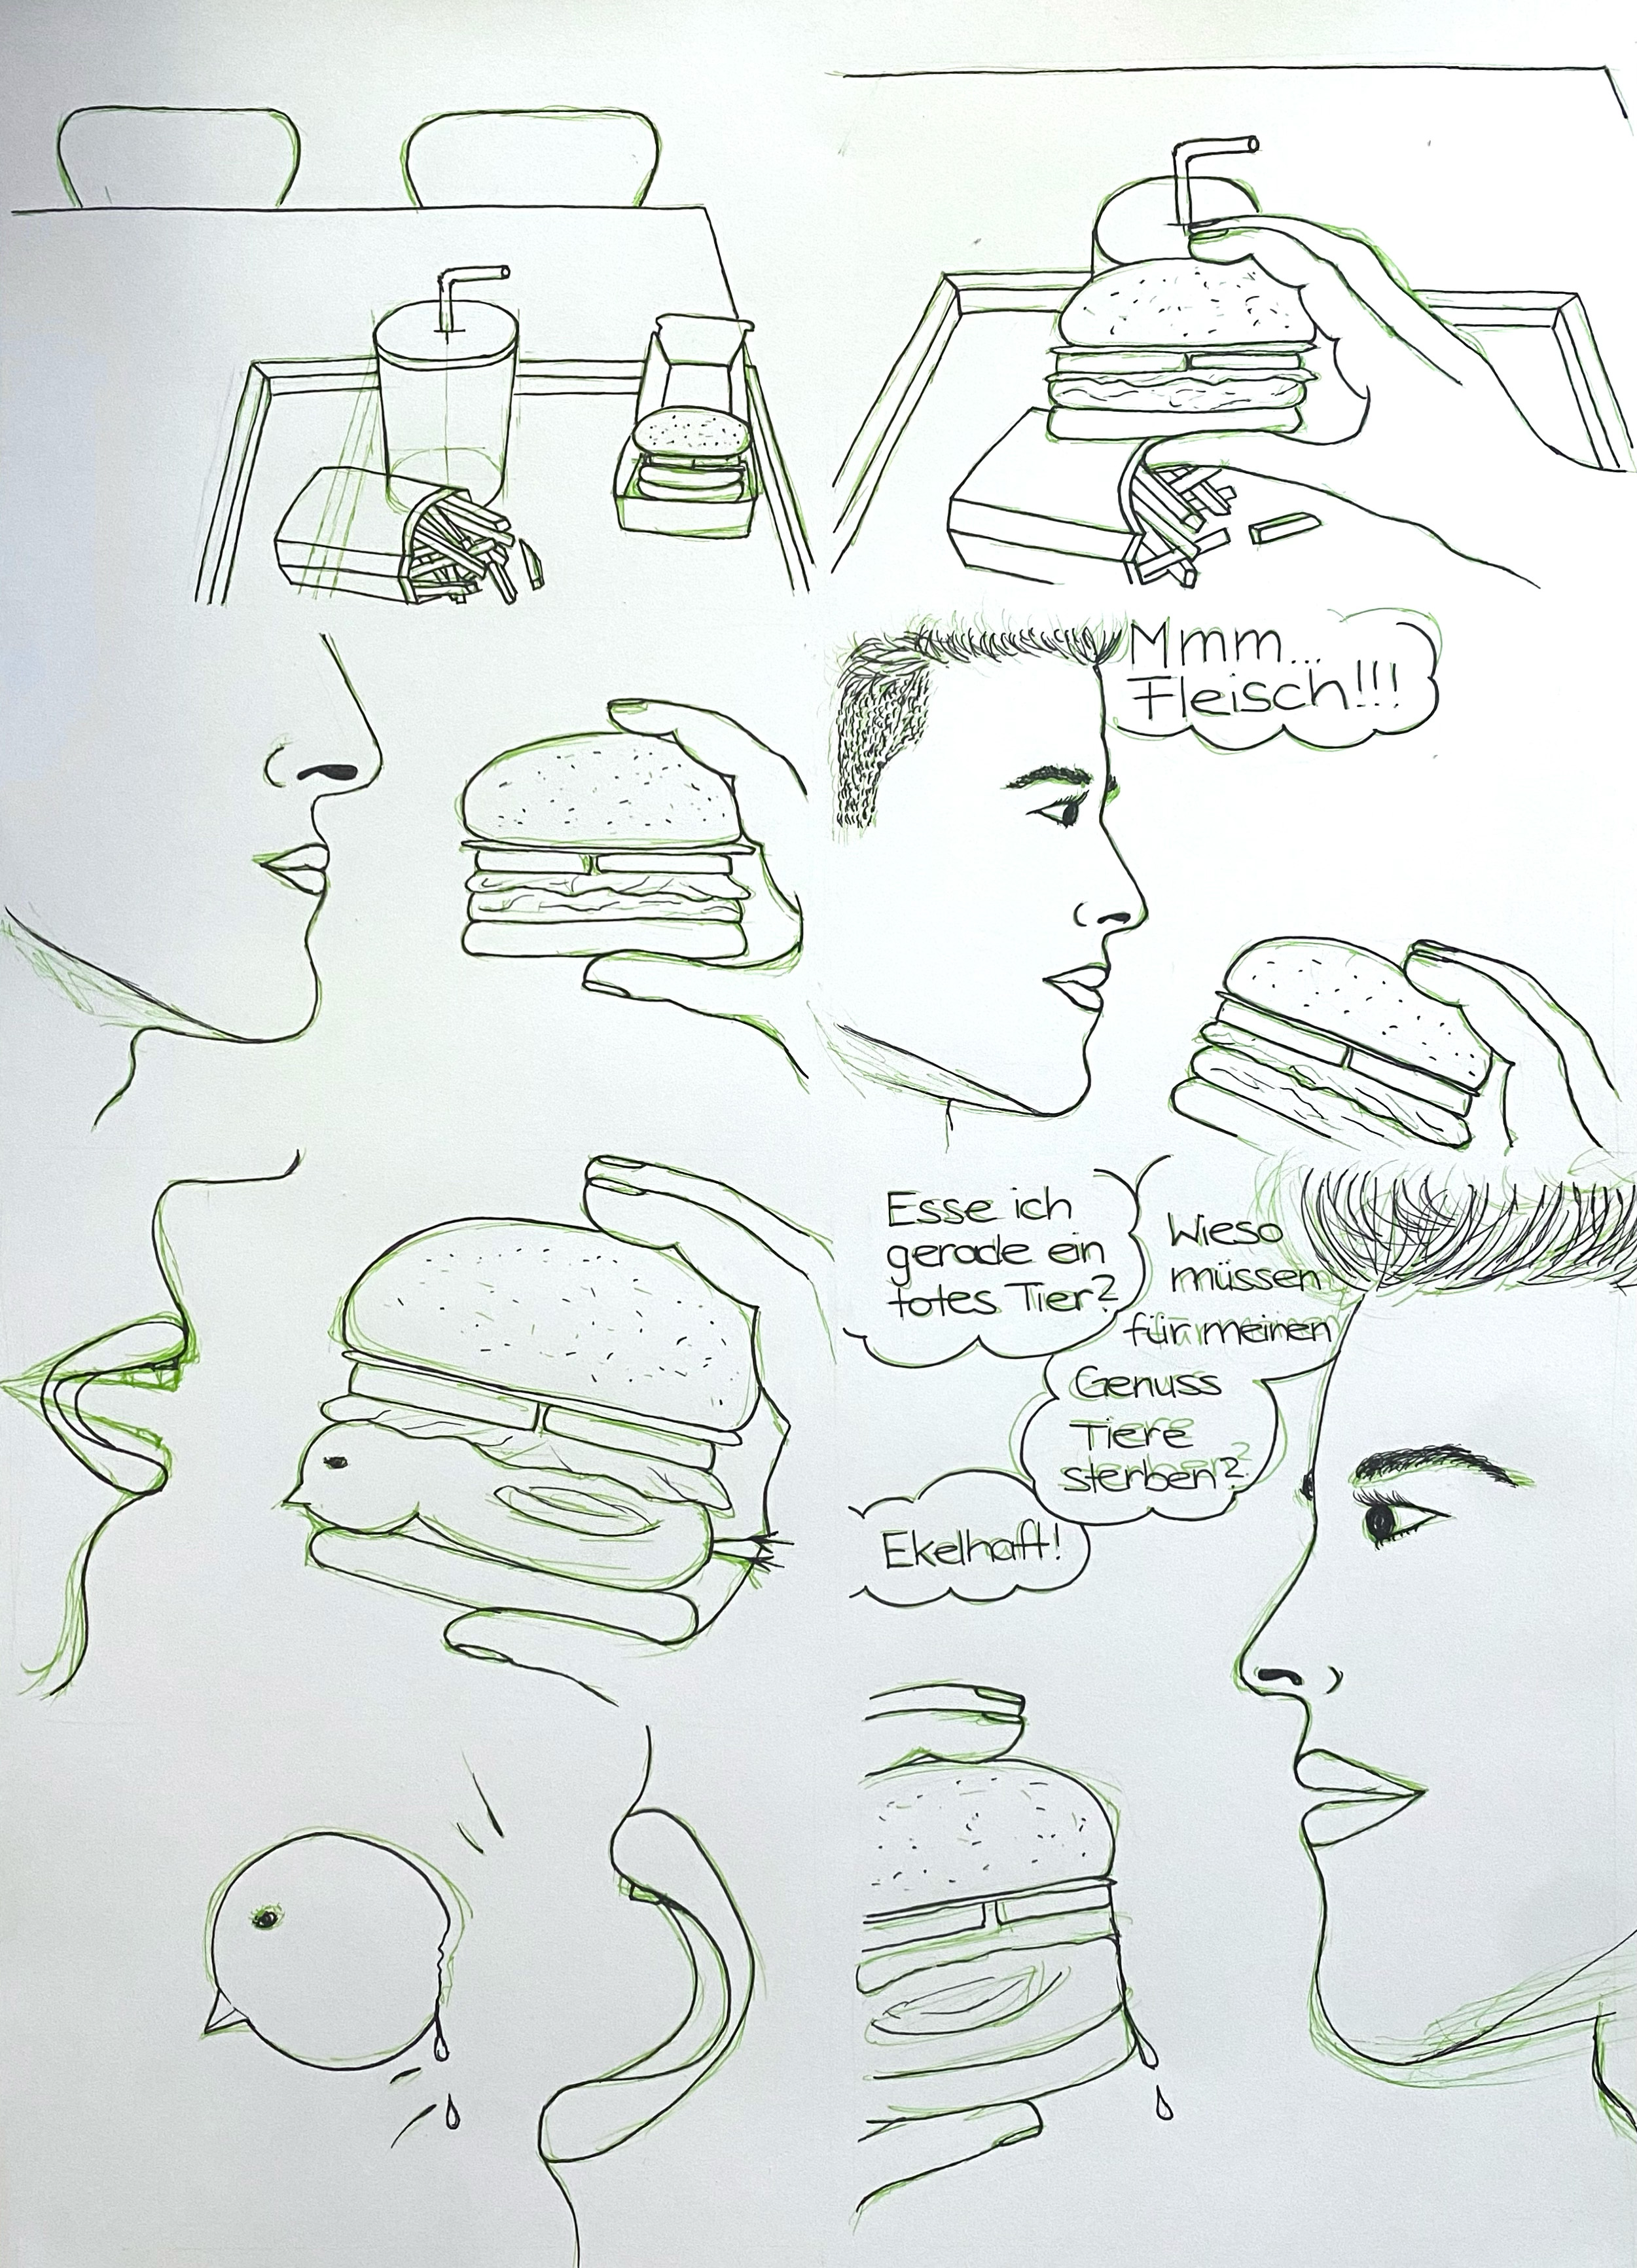 Mmm...
Fleisch!!!
Esse ich
gerade ein
totes Tier?
Wieso
müssen
für meinen
Genuss
Tiere
sterben?
Ekelhaft!